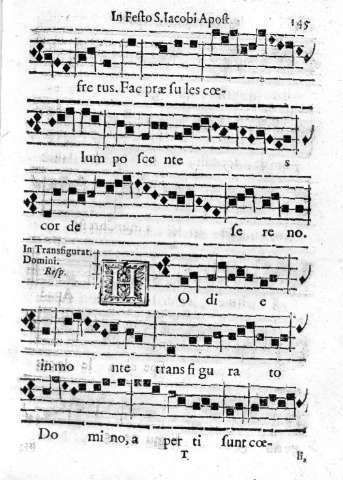 In Festo S. Iacobi Apost. 145
fre tus. Fac præ su les cœ-
lum po sce nte s
cor de se re no.
In Transfigurat.
Domini.
Resp.
H O di e
in mo nte trans fi gu ra to
Do mi no, a per ti sunt cœ-
T